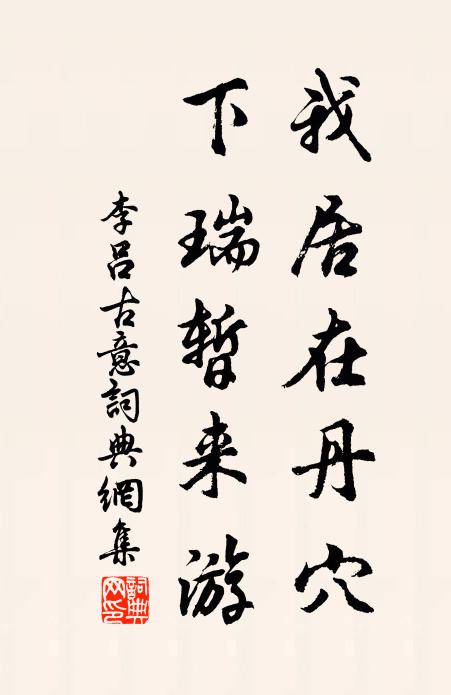 我居在丹穴
下瑞暫来游
李吕古意詞典網集
詞典网印